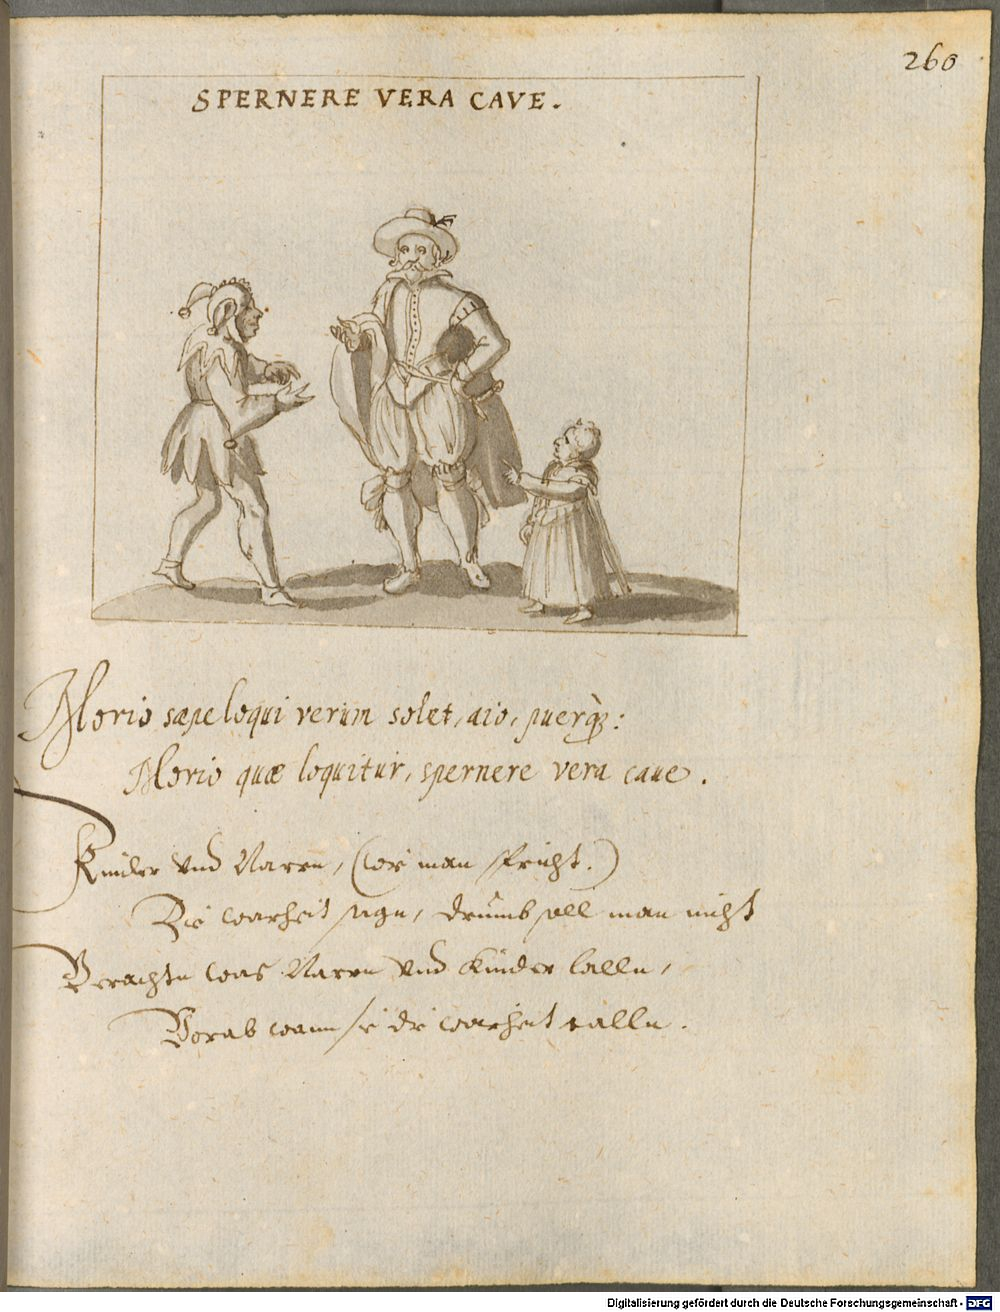 260
SPERNERE VERA CAVE.
Morio sæpe loqui verum solet, aio, puerq̀3:
Morio quæ loquitur, spernere vera caue.
Kinder vnd Narren, (wie man spricht.)
Die warheit sagn, drumb soll man nicht
Verachtn was Narren vnd Kinder lalln,
Vorab wann sie die warheit
Digitalisierung gefördert durch die Deutsche Forschungsgemeinschaft - DFG